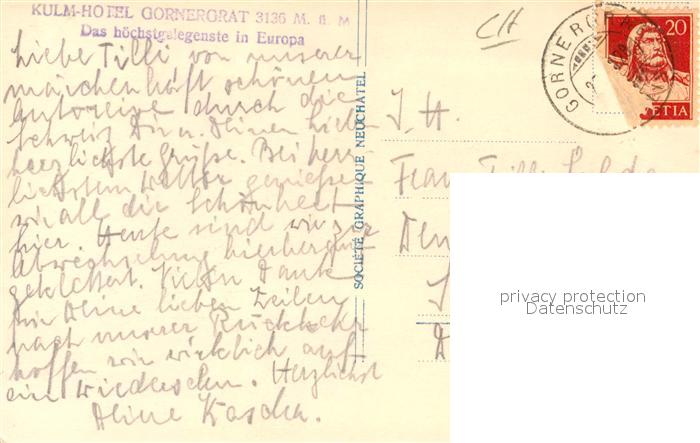 KULM-HOTEL GORNERGRAT 3136 M. ü. M
Das höchstgelegenste in Europa
Liebe Tilli von unserer
märchenhaft schönen
Autoreise durch die
Schweiz Dir u. Deinen Lieben
herzlichste Grüße. Bei herr-
lichstem Wetter genießen
wir all die Schönheit
hier. Heute sind wir zur
Abwechslung hierherauf
geklettert. Vielen Dank
für Deine lieben Zeilen
nach unserer Rückkehr
hoffen wir wirklich auf
ein Wiedersehen. Herzlichst
Deine Kascha.
SOCIÉTÉ GRAPHIQUE NEUCHÂTEL
CH
GORNERGRAT
20
ETIA
I. H.
Frau Tilli
privacy protection
Datenschutz